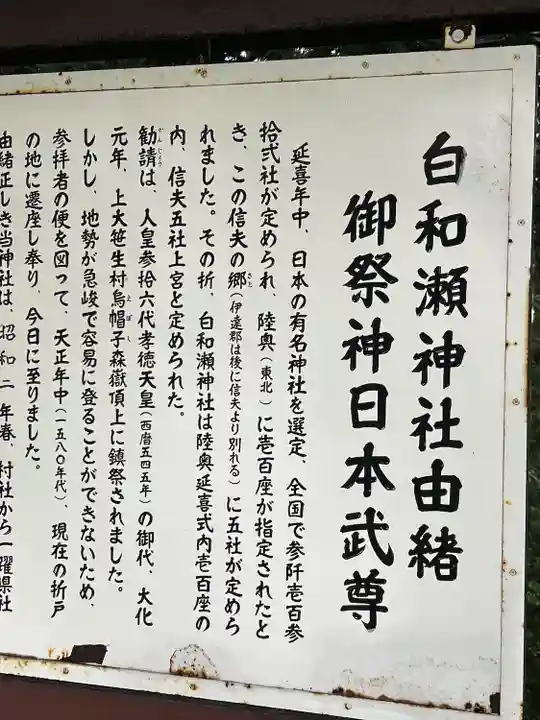 白和瀬神社由緒
御祭神日本武尊
延喜年中、日本の有名神社を選定、全国で参阡壱百参
拾弐社が定められ、陸奥(東北)に壱百座が指定されたと
き、この信夫の郷(伊達郡は後に信夫より別れる)に五社が定めら
れました。その折、白和瀬神社は陸奥延喜式内壱百座の
内、信夫五社上宮と定められた。
勧請は、人皇参拾六代孝徳天皇(西暦五四五年)の御代、大化
元年、上大笹生村烏帽子森嶽頂上に鎮祭されました。
しかし、地勢が急峻で容易に登ることができないため、
参拝者の便を図って、天正年中(一五八〇年代)、現在の折戸
の地に遷座し奉り、今日に至りました。
由緒正しき当神社は、昭和二年春、村社から一躍県社